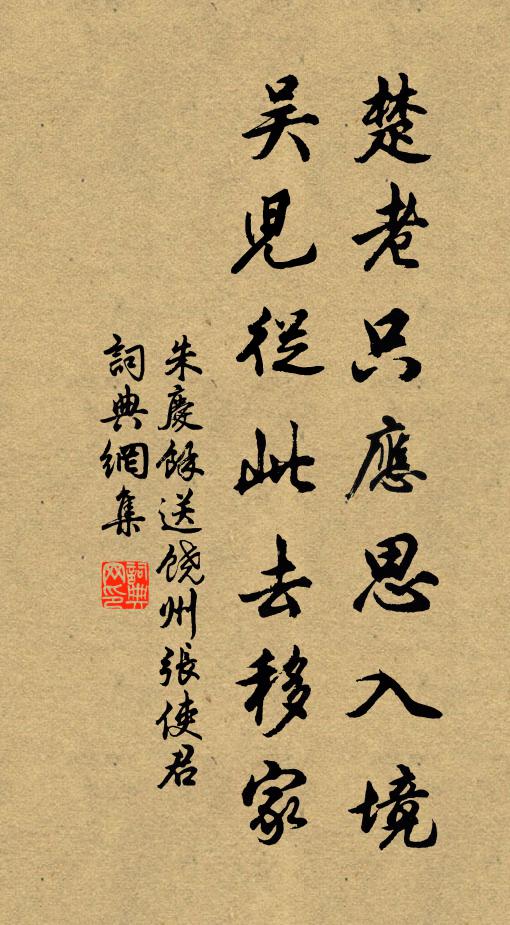 楚老只應思入境
吳兒從此去移家
朱慶餘送饒州張使君
詞典網集
詞典网印